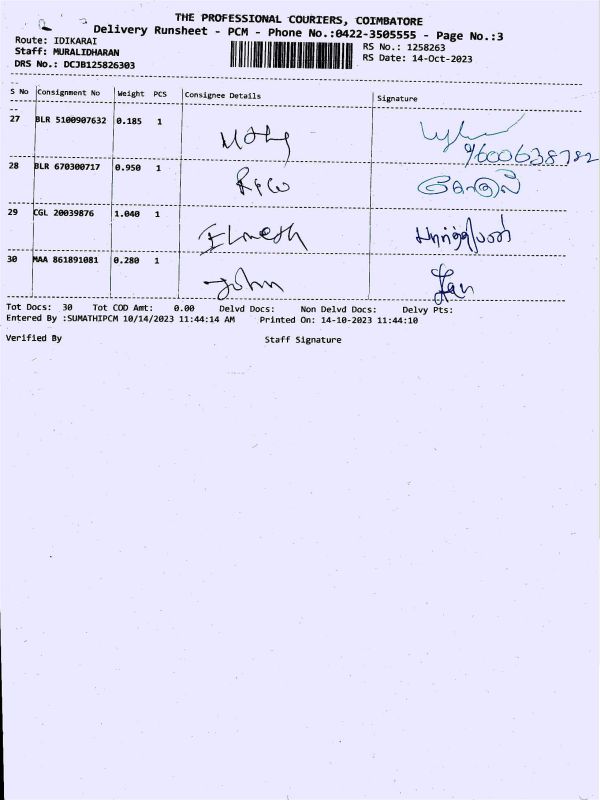 THE PROFESSIONAL COURIERS, COIMBATORE
Delivery Runsheet - PCM - Phone No.:0422-3505555 - Page No.:3
Route: IDIKARAI
RS No.: 1258263
Staff: MURALIDHARAN
RS Date: 14-Oct-2023
DRS No.: DCJB125826303
S No Consignment No Weight PCS Consignee Details Signature
27 BLR 5100907632 0.185 1
9600638782
28 BLR 670300717 0.950 1
29 CGL 20039876 1.040 1
30 MAA 861891081 0.280 1 John
Tot Docs: 30 Tot COD Amt: 0.00 Delvd Docs: Non Delvd Docs: Delvy Pts:
Entered By :SUMATHIPCM 10/14/2023 11:44:14 AM Printed On: 14-10-2023 11:44:10
Verified By Staff Signature